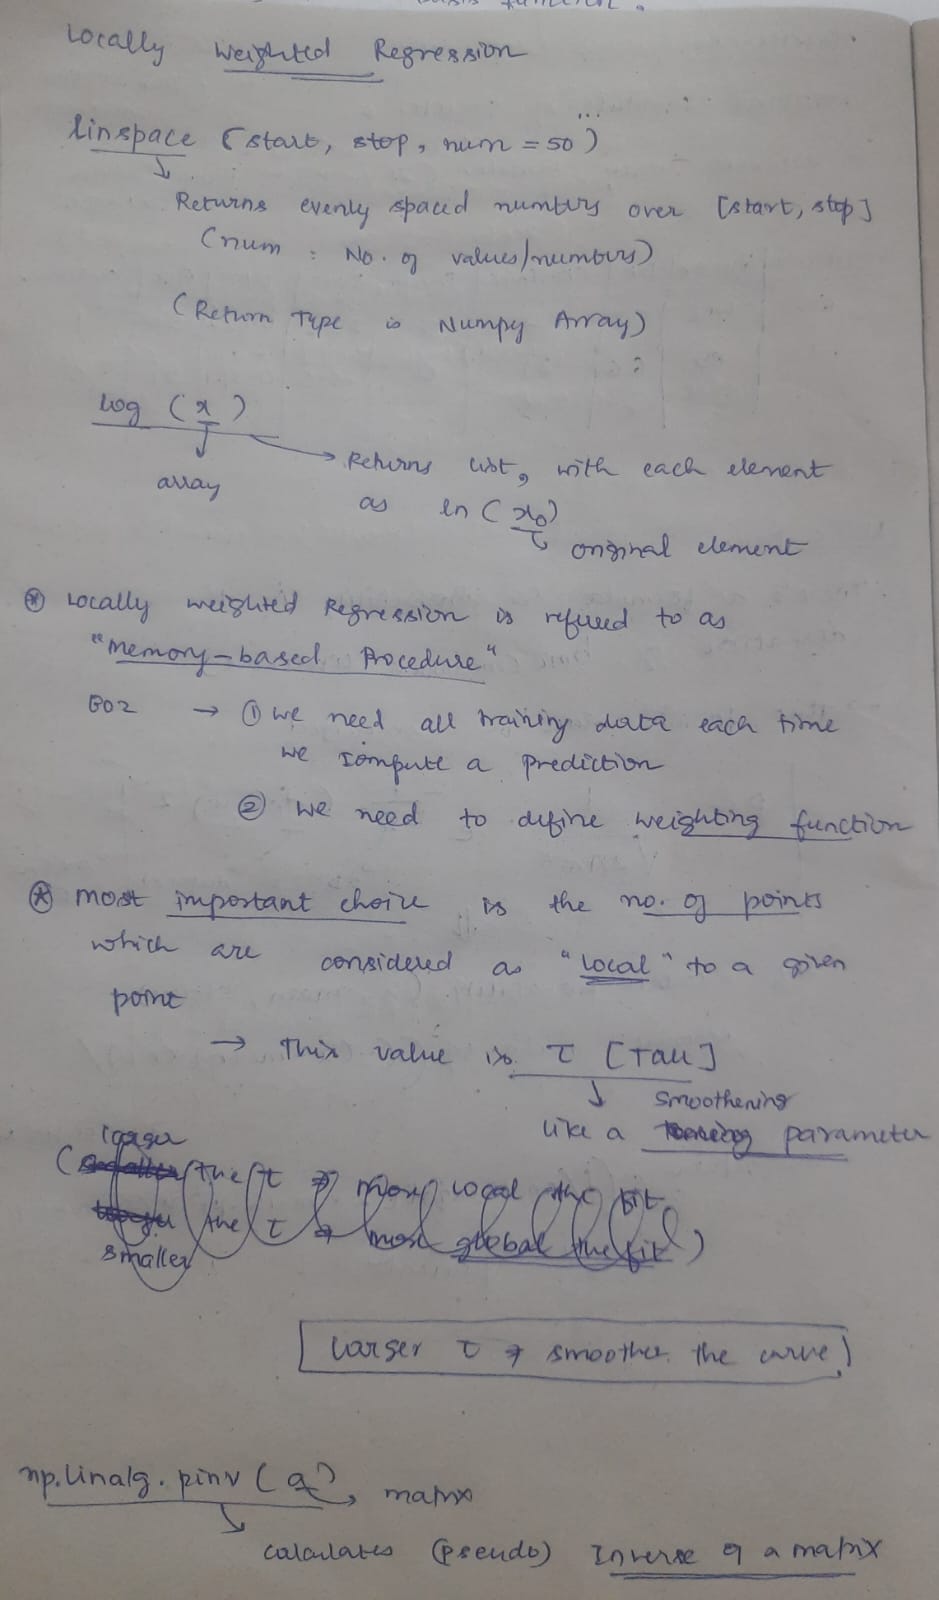 basis function.
Locally Weighted Regression
linspace (start, stop, num = 50 ...)
Returns evenly spaced numbers over [start, stop]
(num : No. of values/numbers)
(Return Type is Numpy Array)
log (x)
Returns list, with each element
array
as ln (x0)
original element
* Locally weighted Regression is refered to as
"Memory-based Procedure"
→ ① we need all training data each time
we compute a prediction
② we need to define weighting function
* most important choice is the no. of points
which are considered as "local" to a given
point
→ This value is τ [Tau]
Smoothening
like a parameter
larger
( the τ → more local the fit
the τ → more global the fit )
smaller
[Larger τ → smoother the curve]
np.linalg.pinv (a) → matrix
calculates (pseudo) Inverse of a matrix